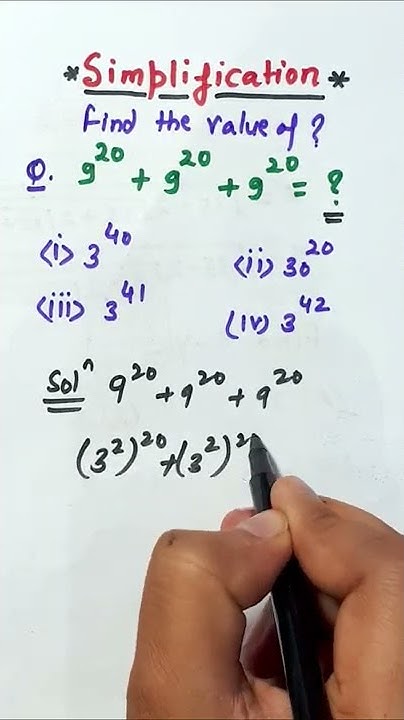 *Simplification*
Find the value of ?
Q. 9²⁰ + 9²⁰ + 9²⁰ = ?
(i) 3⁴⁰ (ii) 30²⁰
(iii) 3⁴¹ (iv) 3⁴²
Solⁿ 9²⁰ + 9²⁰ + 9²⁰
(3²)²⁰ + (3²)²